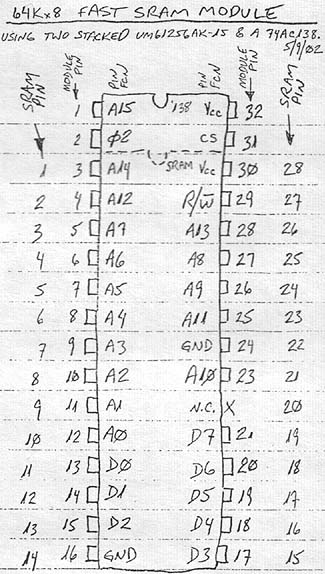 64K×8 FAST SRAM MODULE
USING TWO STACKED UM61256AK-15 & A 74AC138.
5/9/02
SRAM PIN MODULE PIN PIN FCN PIN FCN MODULE PIN SRAM PIN
1 A15 '138 Vcc 32
2 Φ2 CS 31
1 3 A14 SRAM Vcc 30 28
2 4 A12 R/W̅ 29 27
3 5 A7 A13 28 26
4 6 A6 A8 27 25
5 7 A5 A9 26 24
6 8 A4 A11 25 23
7 9 A3 GND 24 22
8 10 A2 A10 23 21
9 11 A1 N.C. X 20
10 12 A0 D7 21 19
11 13 D0 D6 20 18
12 14 D1 D5 19 17
13 15 D2 D4 18 16
14 16 GND D3 17 15